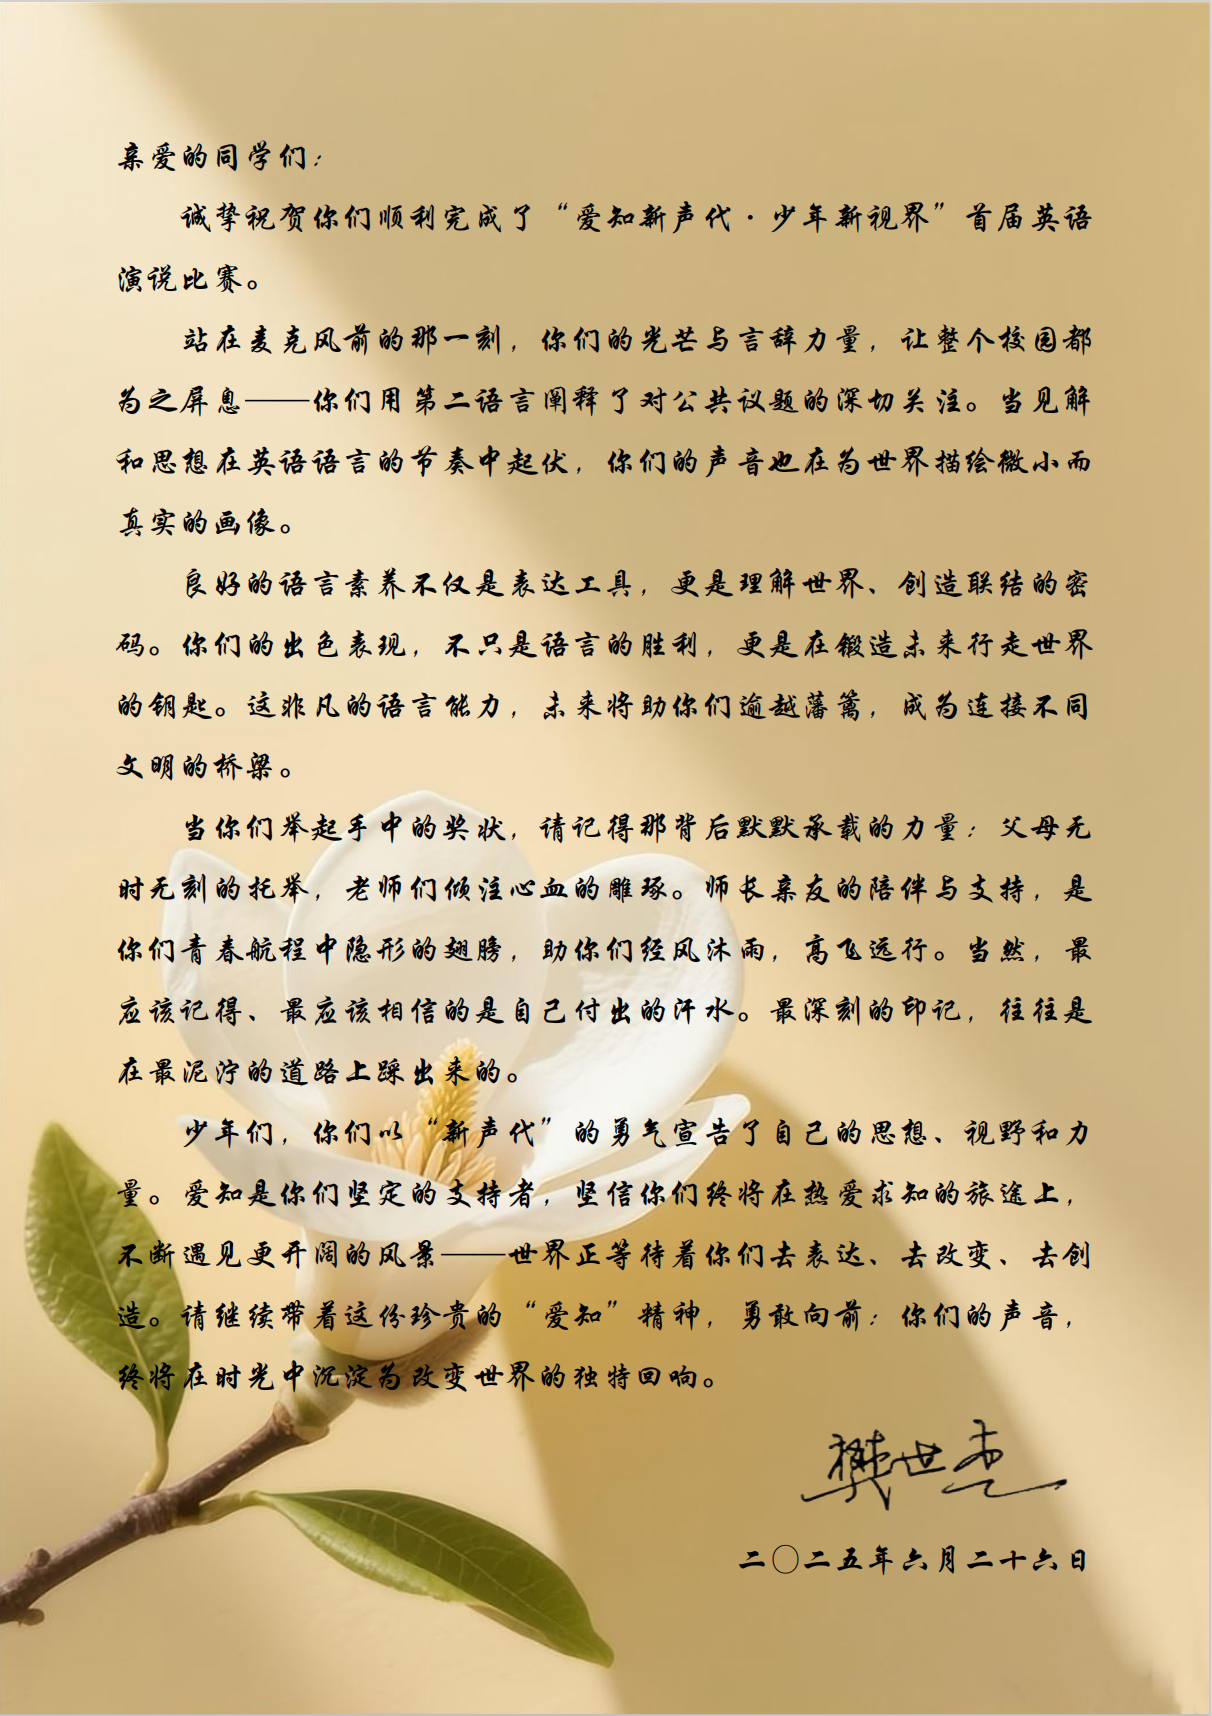 亲爱的同学们：
诚挚祝贺你们顺利完成了“爱知新声代·少年新视界”首届英语
演说比赛。
站在麦克风前的那一刻，你们的光芒与言辞力量，让整个校园都
为之屏息——你们用第二语言阐释了对公共议题的深切关注。当见解
和思想在英语语言的节奏中起伏，你们的声音也在为世界描绘微小而
真实的画像。
良好的语言素养不仅是表达工具，更是理解世界、创造联结的密
码。你们的出色表现，不只是语言的胜利，更是在锻造未来行走世界
的钥匙。这非凡的语言能力，未来将助你们逾越藩篱，成为连接不同
文明的桥梁。
当你们举起手中的奖状，请记得那背后默默承载的力量：父母无
时无刻的托举，老师们倾注心血的雕琢。师长亲友的陪伴与支持，是
你们青春航程中隐形的翅膀，助你们经风沐雨，高飞远行。当然，最
应该记得、最应该相信的是自己付出的汗水。最深刻的印记，往往是
在最泥泞的道路上踩出来的。
少年们，你们以“新声代”的勇气宣告了自己的思想、视野和力
量。爱知是你们坚定的支持者，坚信你们终将在热爱求知的旅途上，
不断遇见更开阔的风景——世界正等待着你们去表达、去改变、去创
造。请继续带着这份珍贵的“爱知”精神，勇敢向前：你们的声音，
终将在时光中沉淀为改变世界的独特回响。
樊世杰
二〇二五年六月二十六日